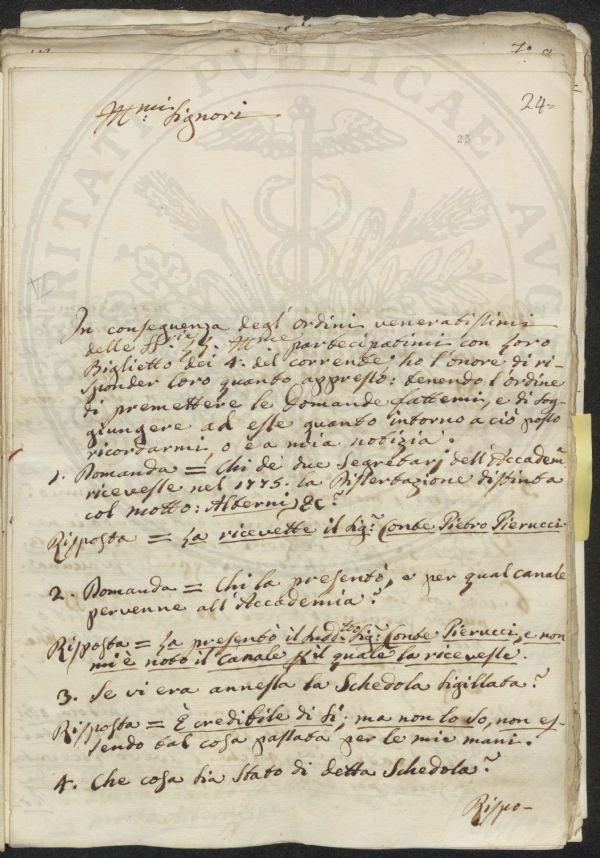 24=
23
Ill.mi Signori
In conseguenza degl'ordini veneratissimi
delle SS.rie LL. Ill.me partecipatimi con loro
Biglietto dei 4. del corrente ho l'onore di ri-
sponder loro quanto appresso: tenendo l'ordine
di premettere le Domande fattemi, e di sog-
giungere ad esse quanto intorno a ciò posso
ricordarmi, o è a mia notizia.
1. Domanda = Chi de due Segretarj dell'Accadem.
ricevesse nel 1775. la Dissertazione distinta
col motto: Alberni, &c?
Risposta = La ricevette il Sig.r Conte Pietro Pierucci.
2. Domanda = Chi la presentò, e per qual canale
pervenne all'Accademia?
Risposta = La presentò il sudd.to Sig.r Conte Pierucci, e non
mi è noto il canale p il quale la ricevesse.
3. Se vi era annessa la Schedola sigillata?
Risposta = È credibile di sì; ma non lo so, non es-
sendo tal cosa passata per le mie mani.
4. Che cosa sia stato di detta Schedola?
Rispo-